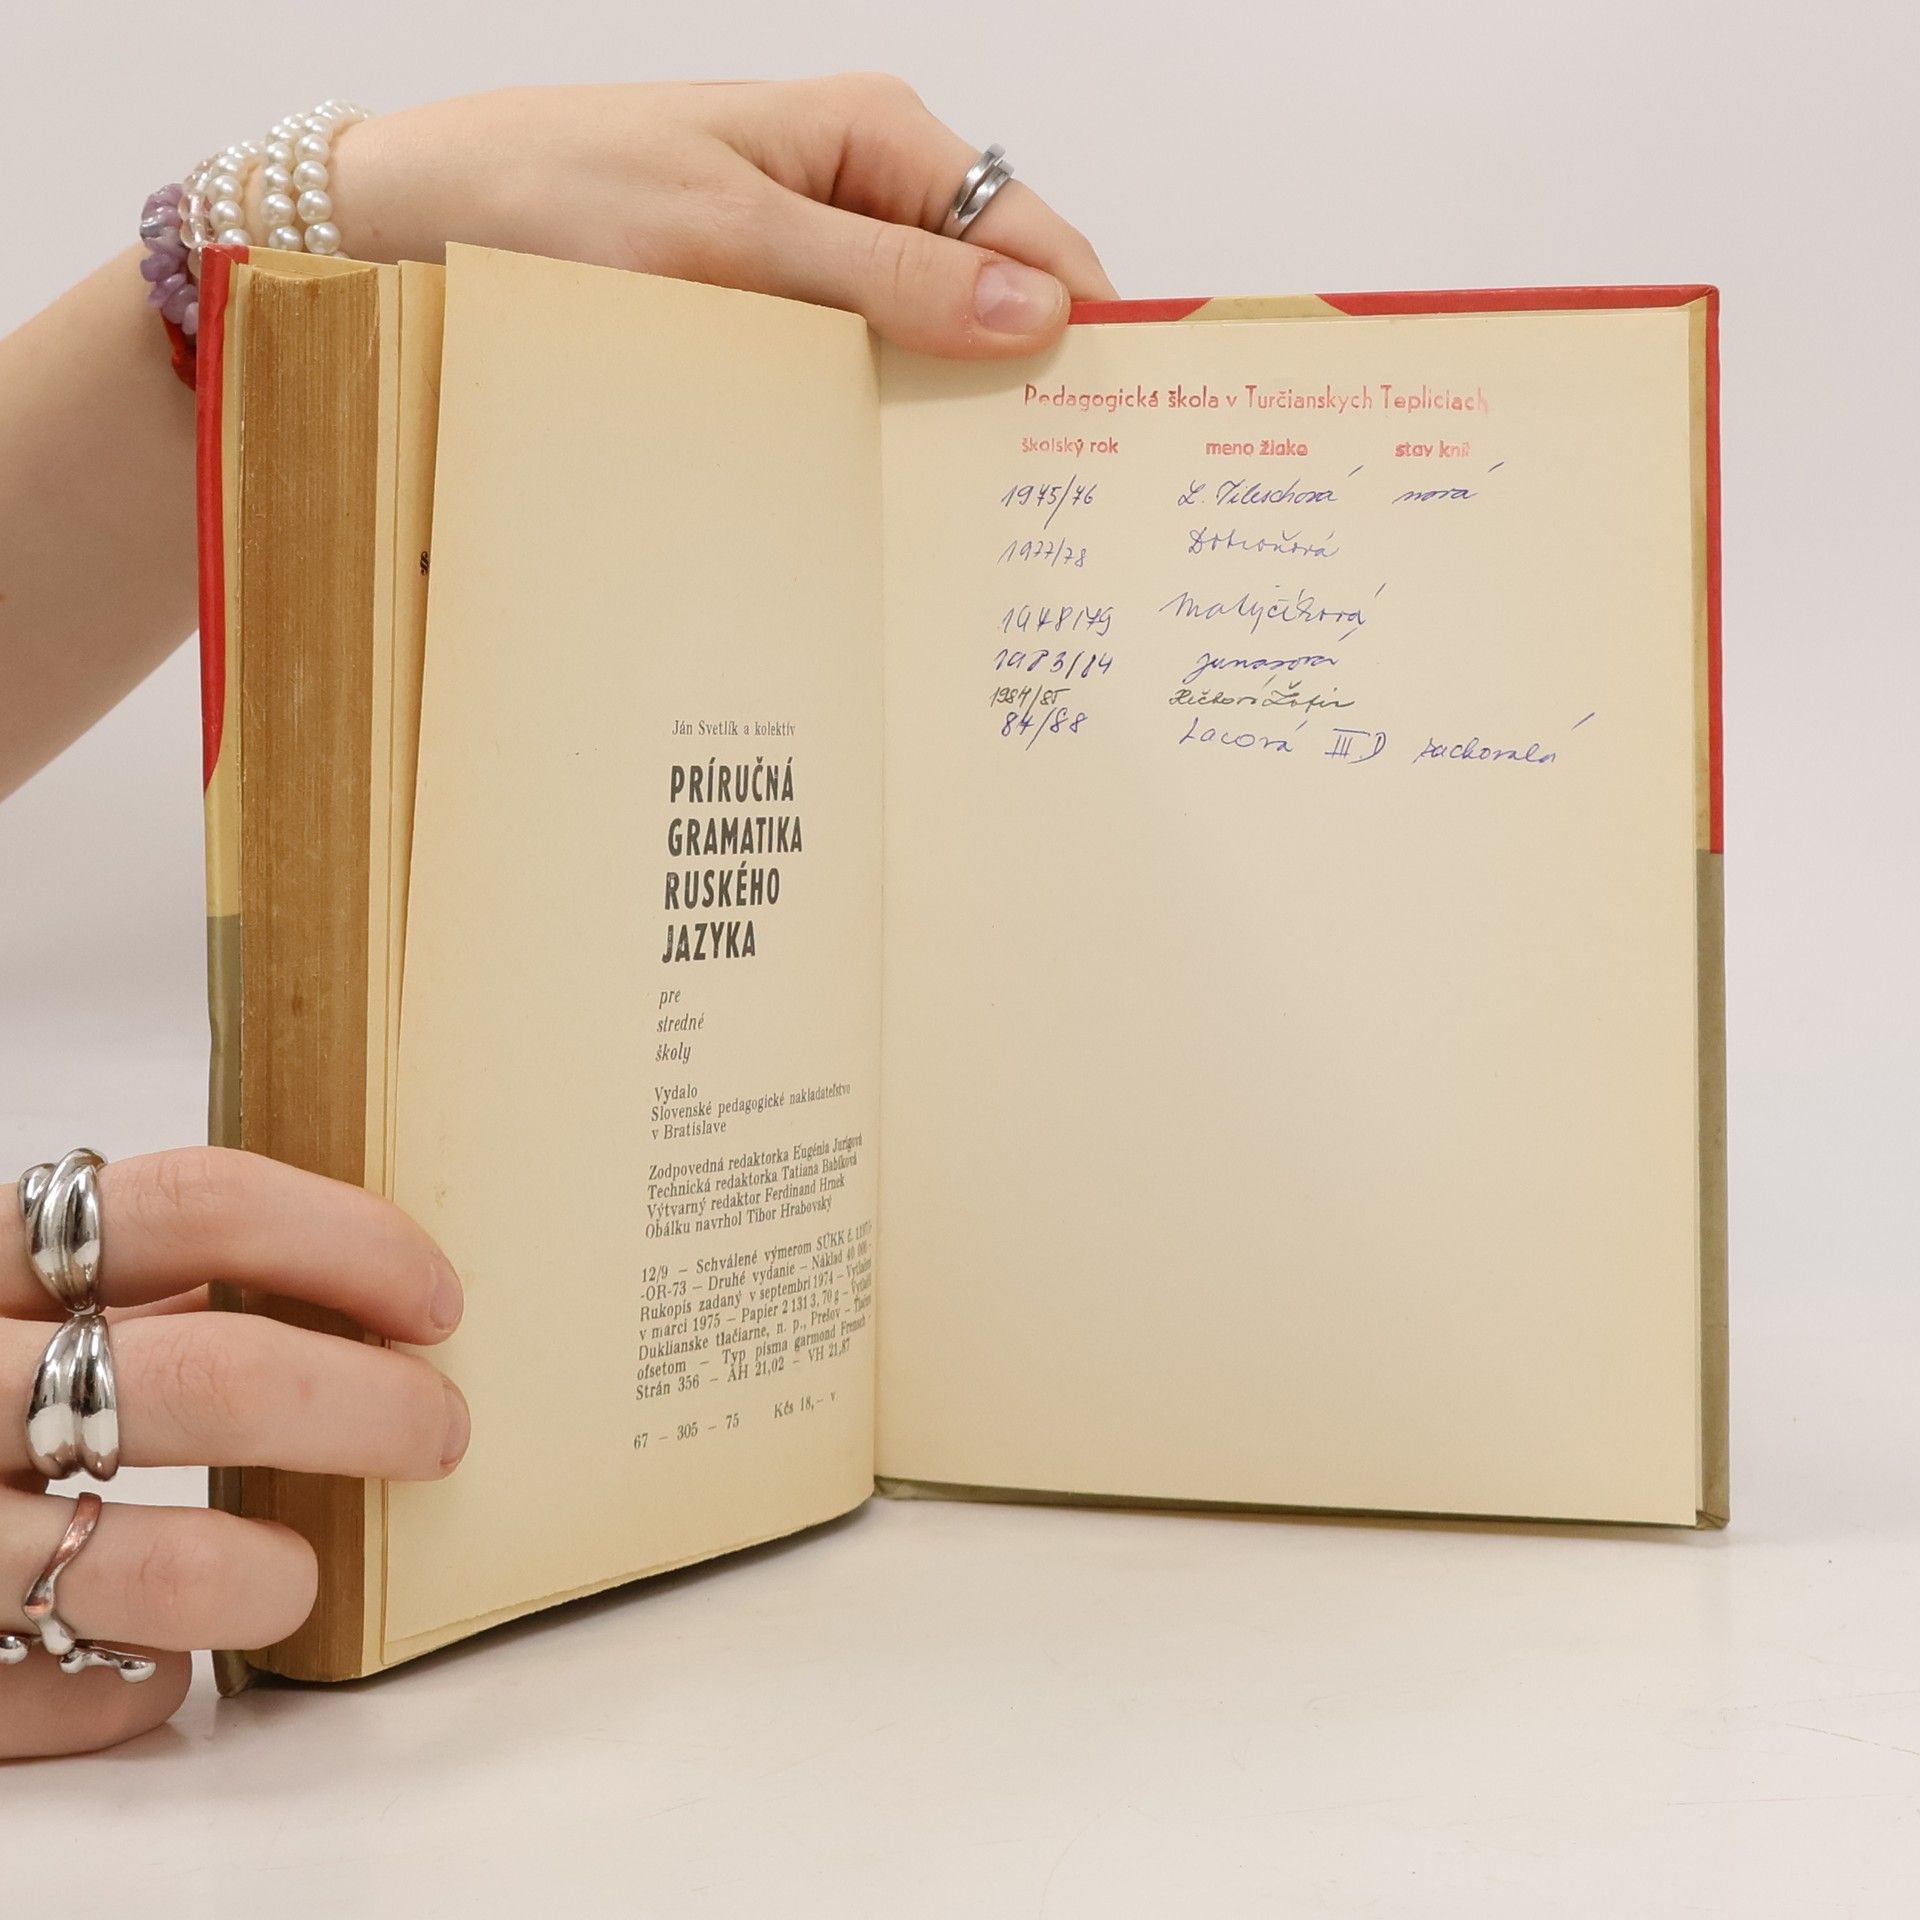 Ján Svetlík a kolektív
PRÍRUČNÁ
GRAMATIKA
RUSKÉHO
JAZYKA
pre
stredné
školy
Vydalo
Slovenské pedagogické nakladateľstvo
v Bratislave
Zodpovedná redaktorka Eugénia Jurigová
Technická redaktorka Tatiana Babíková
Výtvarný redaktor Ferdinand Hrnek
Obálku navrhol Tibor Hrabovský
12/9 — Schválené výmerom SÚKK č.
-OR-73 — Druhé vydanie — Náklad 40 000 -
Rukopis zadaný v septembri 1974 — Vytlačené
v marci 1975 — Papier 2 131 3, 70 g —
Duklianske tlačiarne, n. p., Prešov — Tlačené
ofsetom — Typ písma garmond French -
Strán 356 — AH 21,02 — VH 21,87
67 — 305 — 75 Kčs 18,— v.
Pedagogická škola v Turčianskych Tepliciach
školský rok meno žiaka stav kníh
1975/76 nová
1977/78
1978/79
1983/84
1984/85
Lacová III.D zachovalá